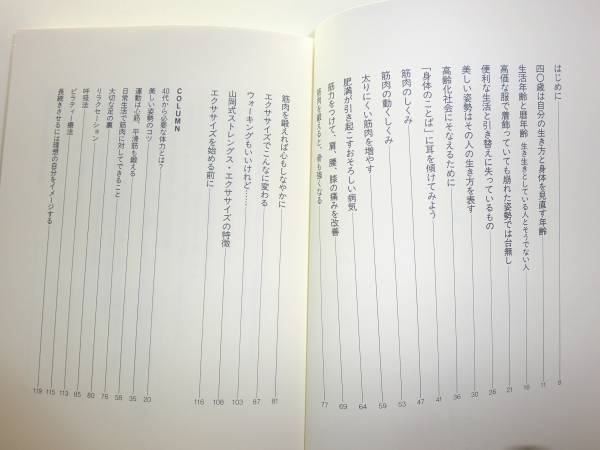 はじめに 8
四〇歳は自分の生き方と身体を見直す年齢 11
生活年齢と暦年齢 生き生きとしている人とそうでない人 18
高価な服で着飾っていても崩れた姿勢では台無し 21
便利な生活と引き替えに失っているもの 25
美しい姿勢はその人の生き方を表す 30
高齢化社会にそなえるために 36
「身体のことば」に耳を傾けてみよう 41
筋肉のしくみ 47
筋肉の動くしくみ 53
太りにくい筋肉を増やす 59
肥満が引き起こすおそろしい病気 64
筋力をつけて、肩、腰、膝の痛みを改善 69
筋肉を鍛えると、骨も強くなる 77
筋肉を鍛えれば心もしなやかに 81
エクササイズでこんなに変わる 87
ウォーキングもいいけれど…… 103
山岡式ストレングス・エクササイズの特徴 108
エクササイズを始める前に 116
COLUMN
40代から必要な体力とは? 20
美しい姿勢のコツ 35
運動は心筋、平滑筋も鍛える 58
日常生活で筋肉に対してできること 76
大切な足の裏 80
リラクセーション 85
呼吸法 113
ピラティー療法 115
長続きさせるには理想の自分をイメージする 119